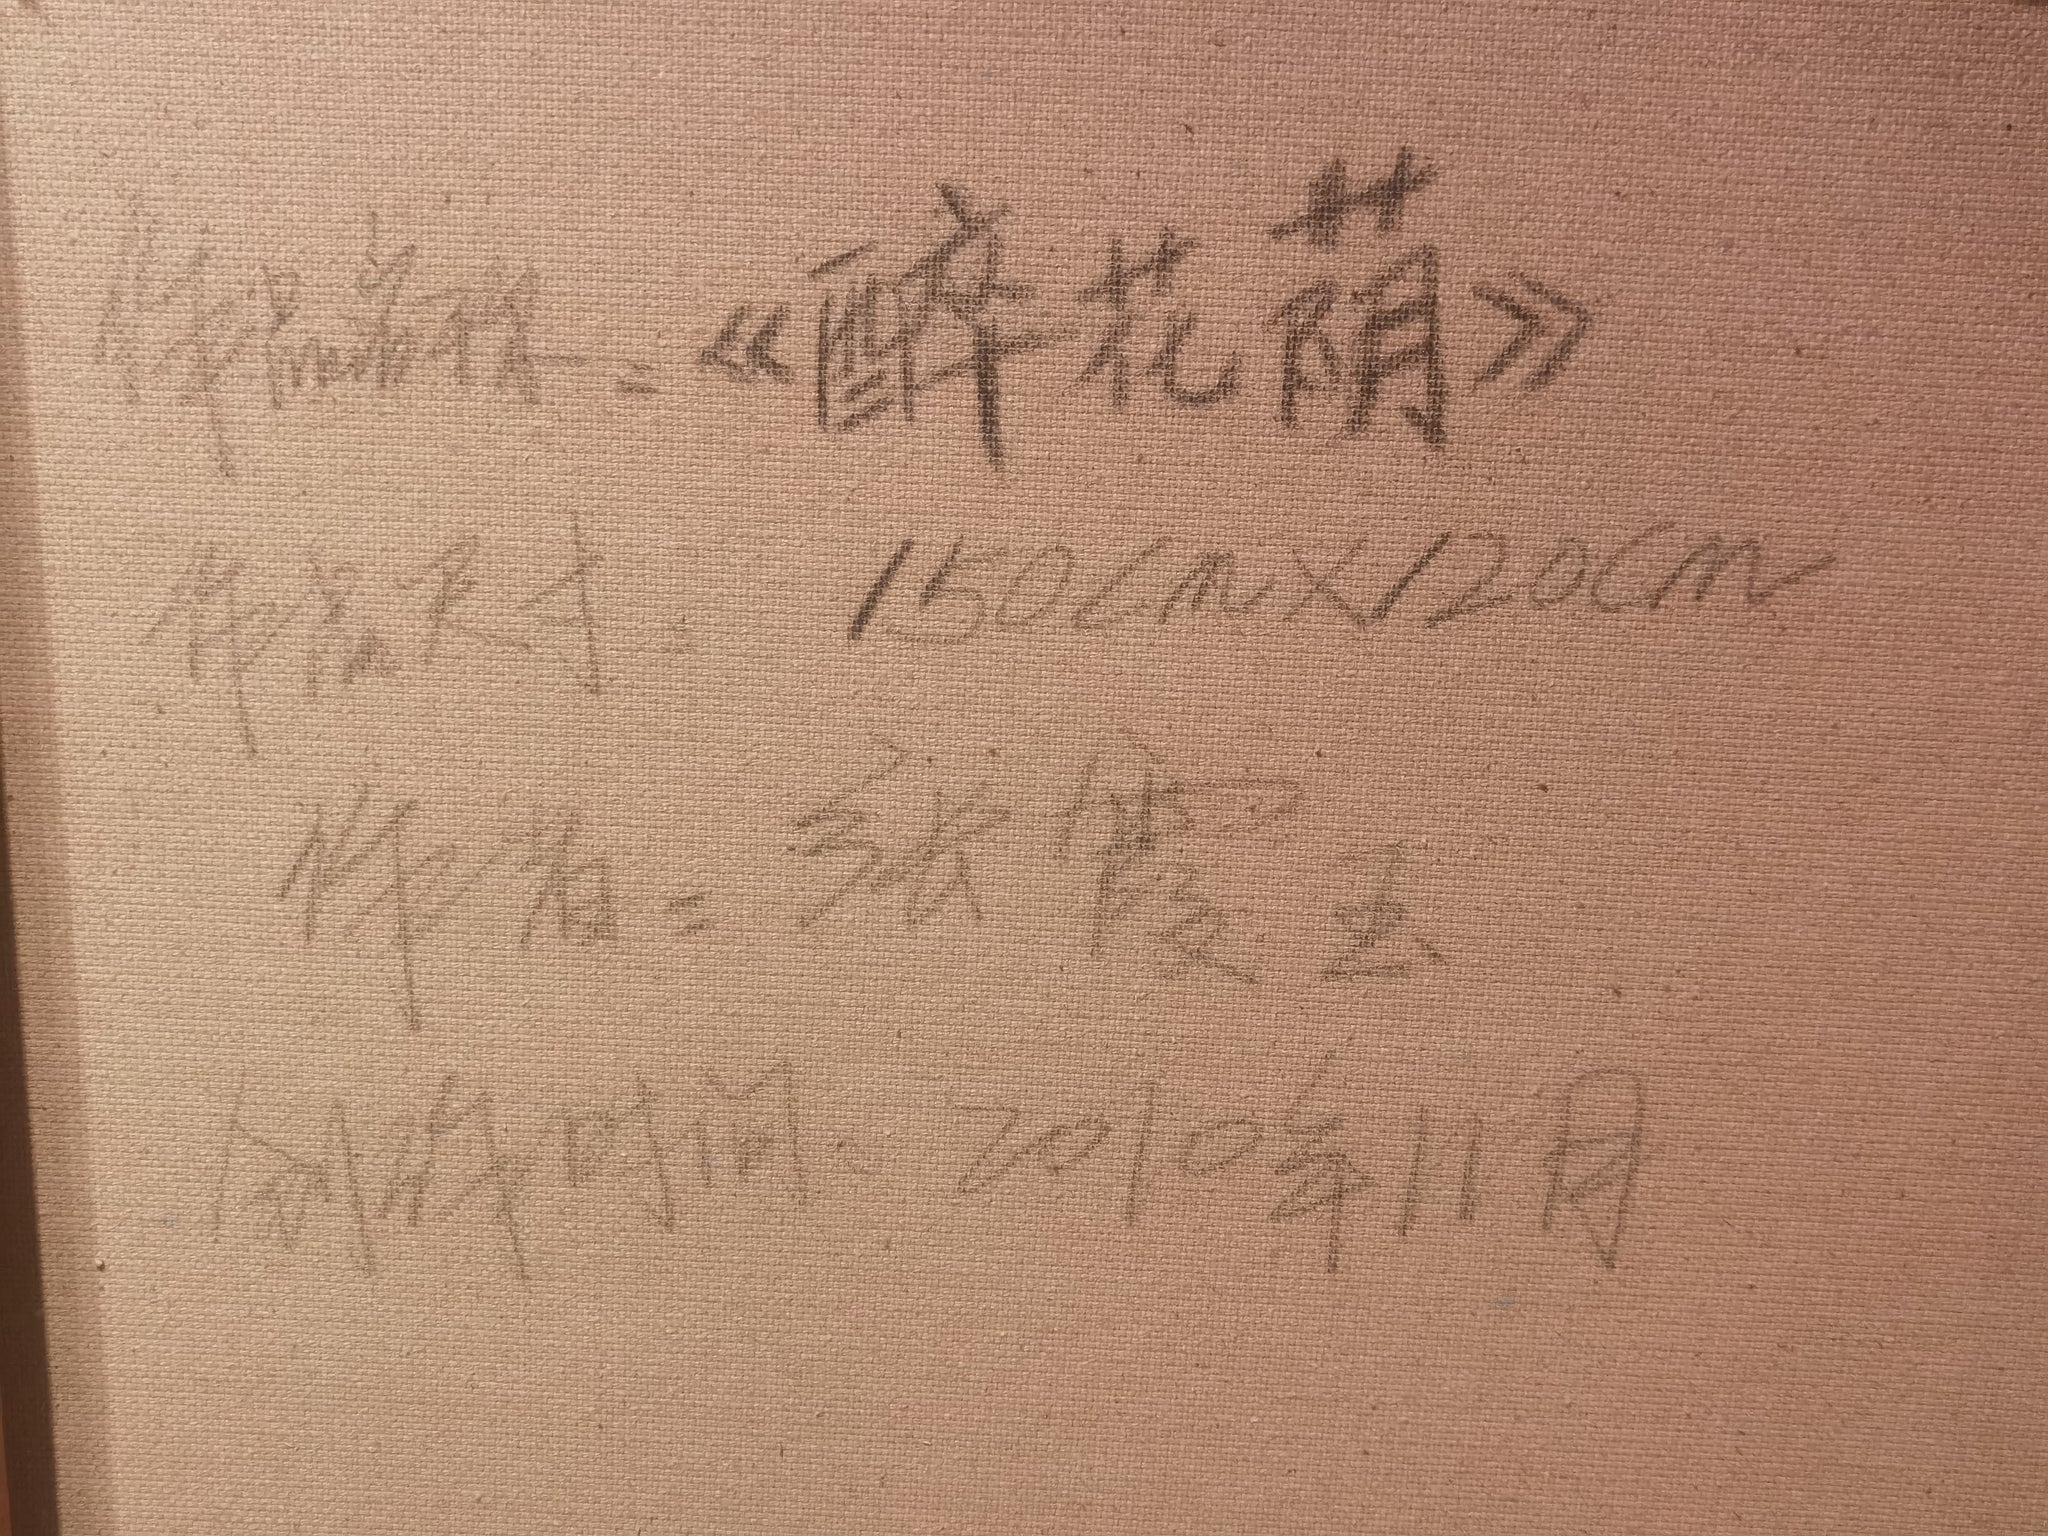 作品名称:《醉花荫》
作品尺寸: 150cm×120cm
作者: 张俊玉
创作时间: 2010年11月